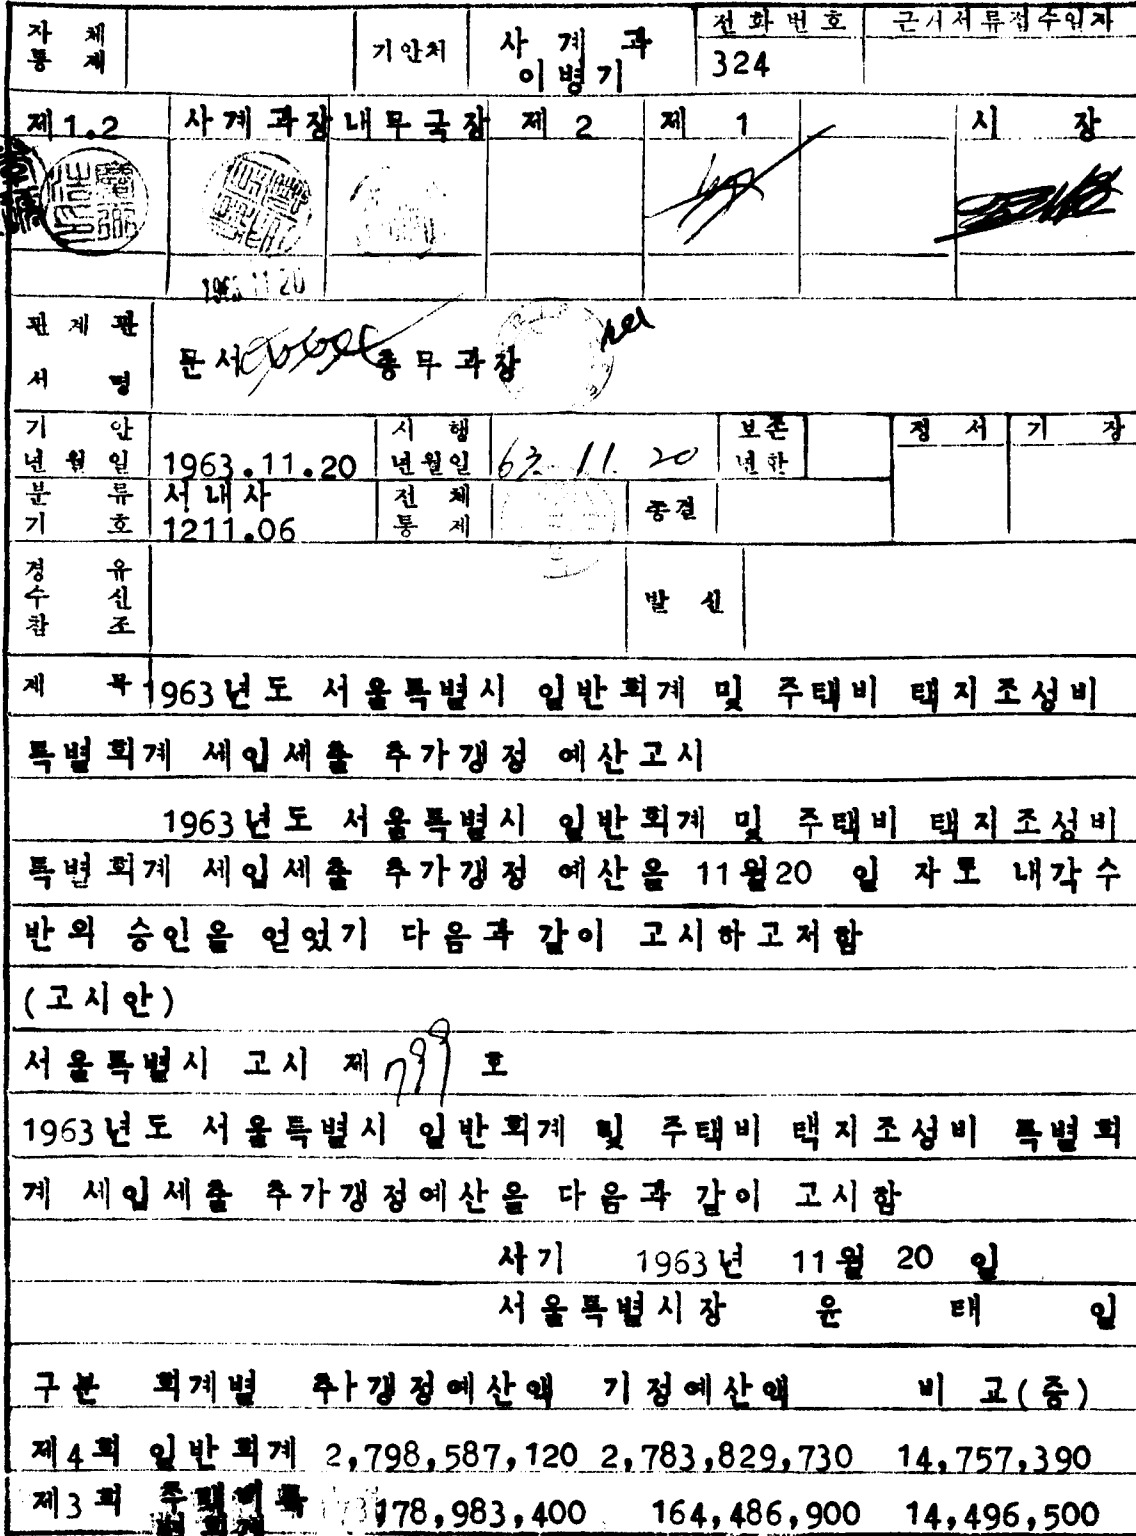 자 체 통 제 기안처 사 계 과 이병기 전화번호 324 근거서류접수일자
제1.2 사계과장 내무국장 제 2 제 1 시 장
1963 11 20
관 계 관 서 명 문서 총무과장
기 안 년 월 일 1963.11.20 시 행 년월일 63. 11. 20 보존 년한 정 서 기 장
분 류 기 호 서내사 1211.06 전 체 통 제 종결
경 유 수 신 참 조 발 신
제 목 1963년도 서울특별시 일반회계 및 주택비 택지조성비
특별회계 세입세출 추가갱정 예산고시
1963년도 서울특별시 일반회계 및 주택비 택지조성비
특별회계 세입세출 추가갱정 예산을 11월20 일 자로 내각수
반의 승인을 얻었기 다음과 같이 고시하고저함
(고시안)
서울특별시 고시 제 799 호
1963년도 서울특별시 일반회계 및 주택비 택지조성비 특별회
계 세입세출 추가갱정예산을 다음과 같이 고시함
서기 1963년 11월 20 일
서울특별시장 윤 태 일
구분 회계별 추가갱정예산액 기정예산액 비 교(증)
제4회 일반회계 2,798,587,120 2,783,829,730 14,757,390
제3회 주택비특별회계 178,983,400 164,486,900 14,496,500